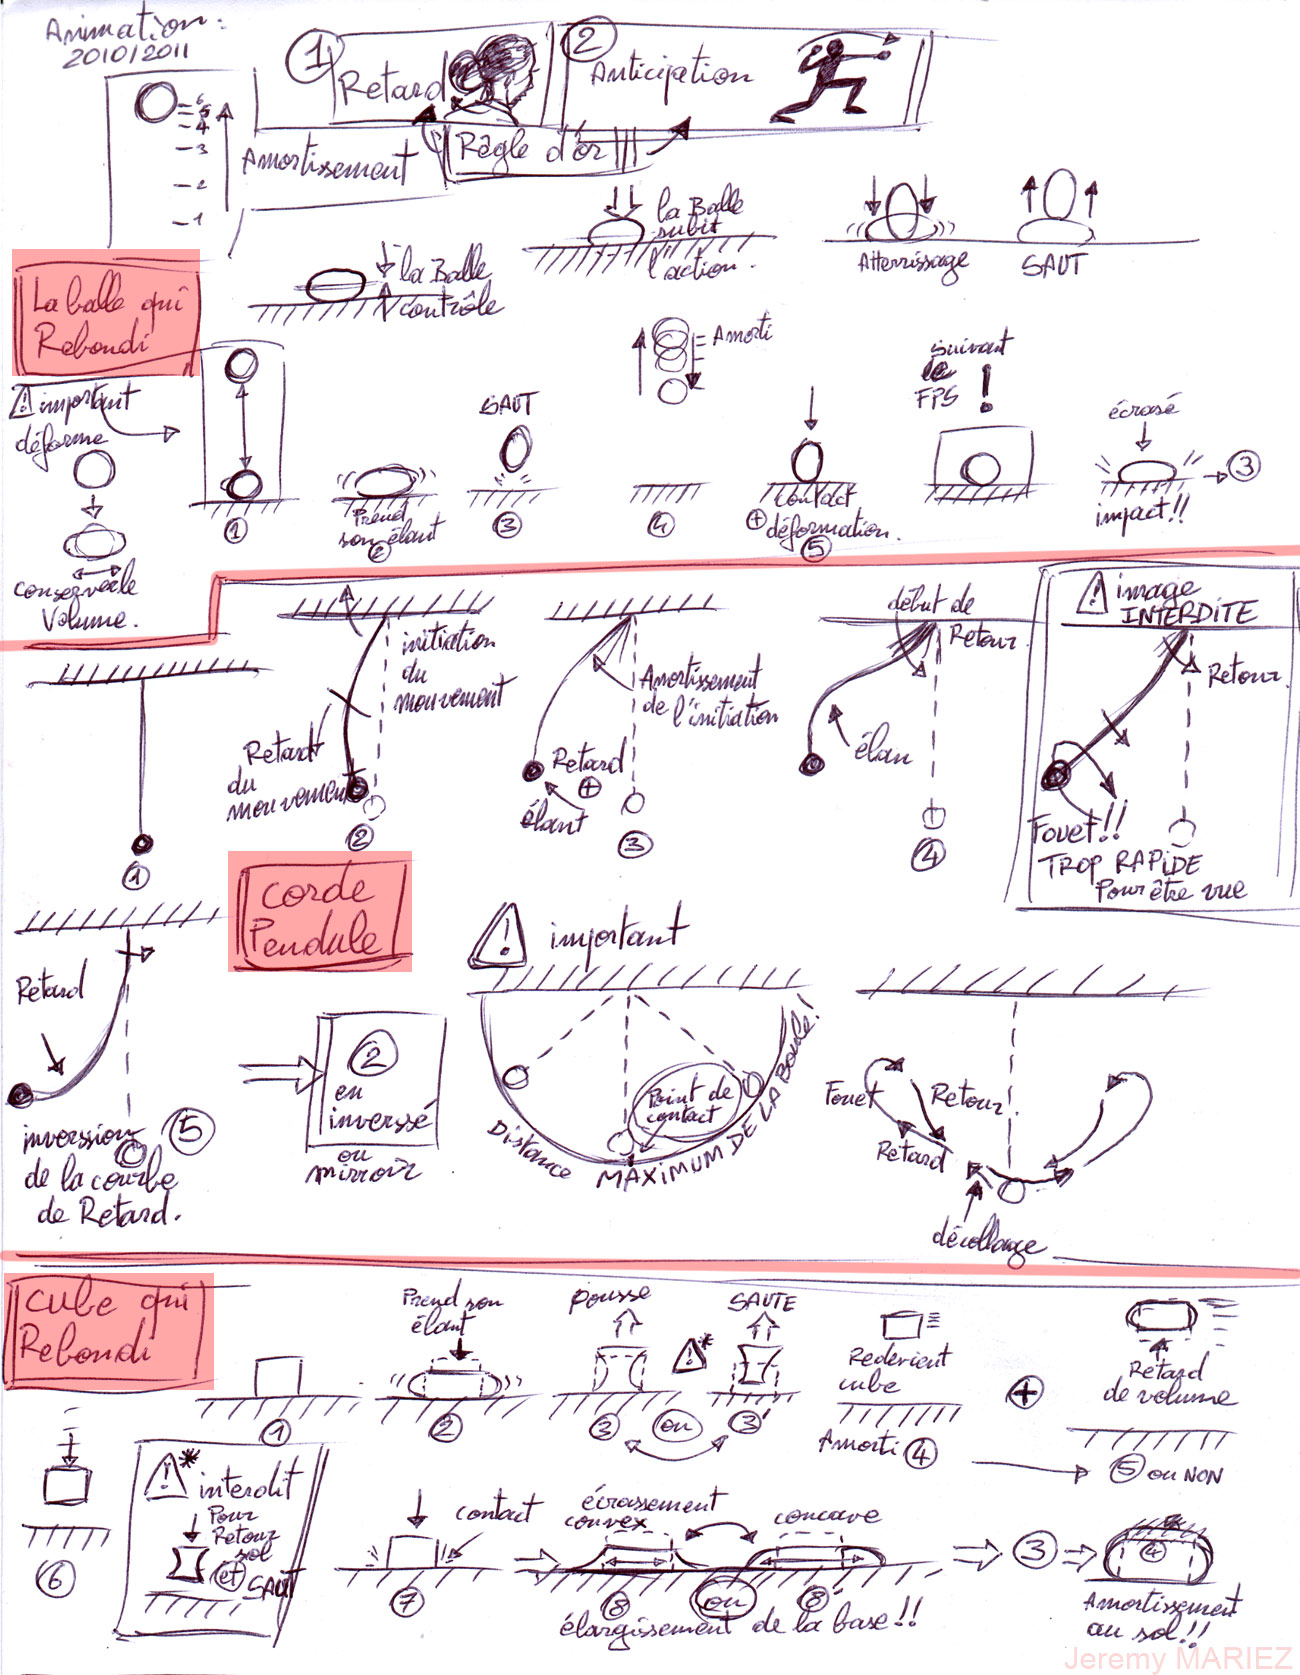 Animation :
2010/2011
1
Retard
2
Anticipation
6
5
4
3
2
1
Amortissement
Règle d'or
la Balle
subit
l'action.
Atterrissage
SAUT
la Balle
contrôle
La balle qui
Rebondi
Amorti
suivant
le
FPS !
important
déforme
SAUT
écrasé
3
1
Prend
son élant
2
3
4
contact
+ déformation.
5
impact!!
conserve le
Volume.
initiation
du
mouvement
Retard
du
mouvement
2
Amortissement
de l'initiation
Retard
+
élant
3
début de
Retour
élan
4
! image
INTERDITE
Retour
Fouet!!
TROP RAPIDE
Pour être vue
1
corde
Pendule
Retard
inversion
5
de la courbe
de Retard.
2
en
inverssé
ou
mirroir
! important
Point de
contact
Distance MAXIMUM DE LA BOULE!
Fouet
Retour
Retard
décollage
cube qui
Rebondi
1
Prend son
élant
2
pousse
3
ou
! *
SAUTE
3'
Redevient
cube
Amorti 4
+
Retard
de volume
5 ou NON
6
! *
interdit
Pour
Retour
sol
et
SAUT
contact
7
écrassement
convex
concave
8
ou
8'
élargissement de la base!!
3
4
Amortissement
au sol!!
Jeremy MARIEZ